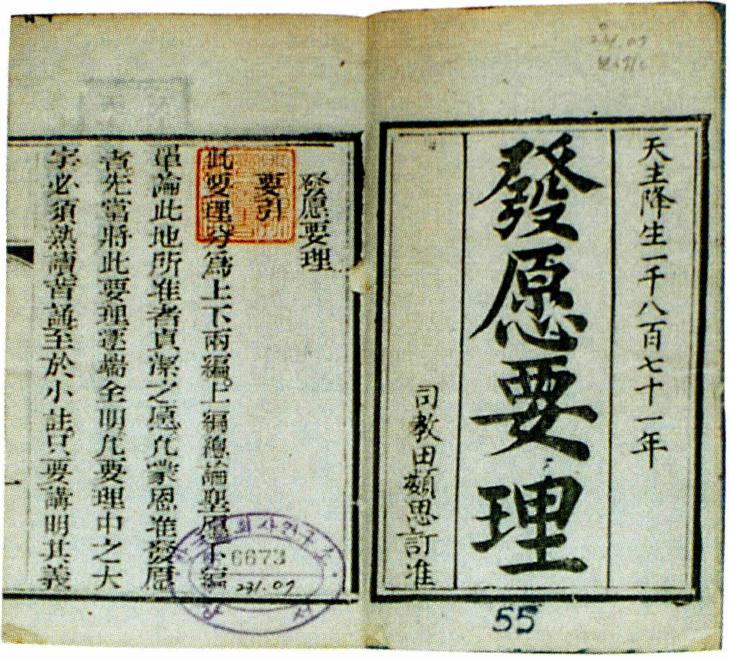 天主降生一千八百七十一年
發愿要理
司教田類思訂准
55
發愿要理
要引
此要理分爲上下兩編。上編總論聖愿下編
單論此地所准者貞潔之愿凡蒙恩准發愿
者先當將此要理逐端全明凡要理中之大
字必須熟讀背誦至於小註只要講明其義
6673
231.07